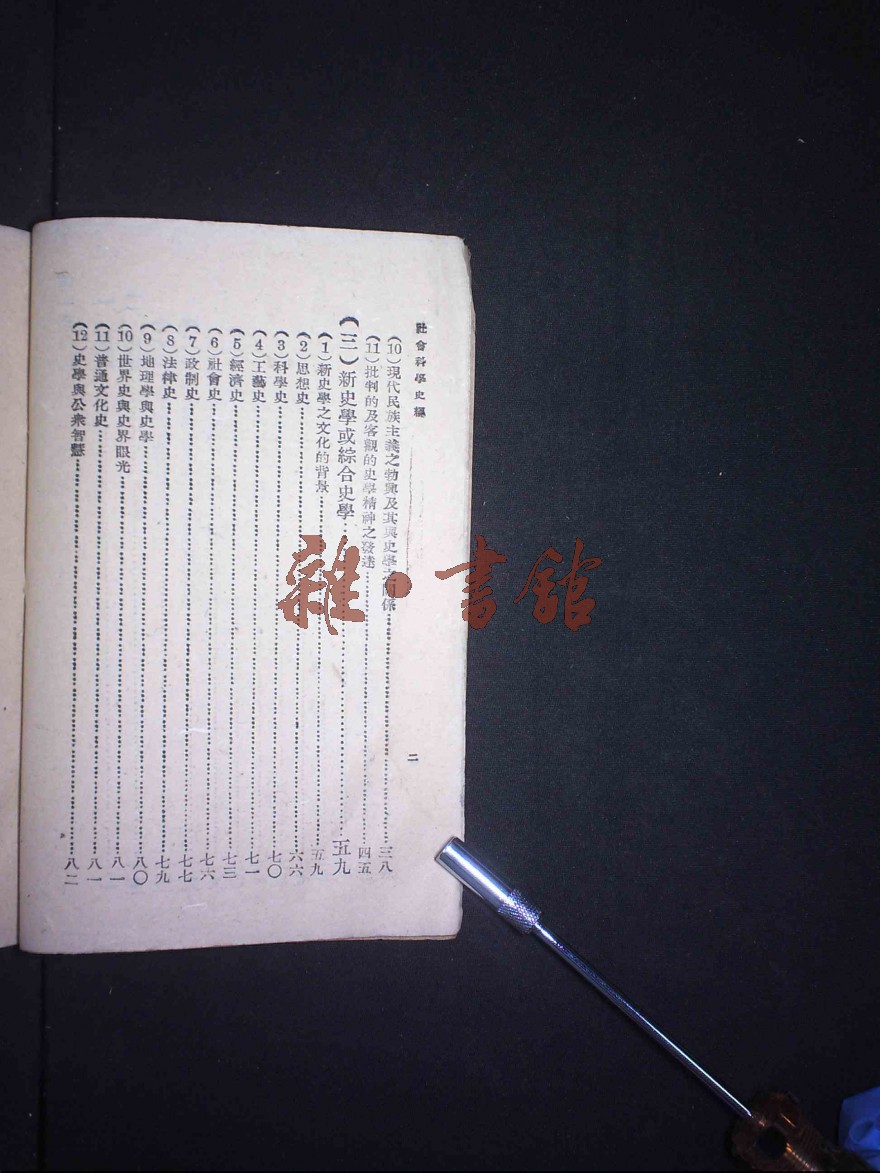 社會科學史綱
二
(10)現代民族主義之勃興及其與史學之關係……三八
(11)批判的及客觀的史學精神之發達……四五
(三)新史學或綜合史學……五九
(1)新史學之文化的背景……五九
(2)思想史……六六
(3)科學史……七〇
(4)工藝史……七一
(5)經濟史……七三
(6)社會史……七六
(7)政制史……七七
(8)法律史……七九
(9)地理學與史學……八〇
(10)世界史與史界眼光……八一
(11)普通文化史……八一
(12)史學與公衆智慧……八二
雜·書館